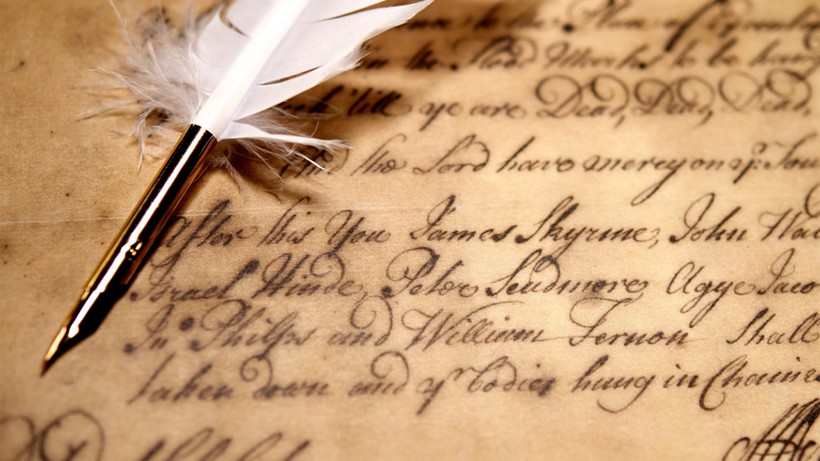 to the Place of
the Flood Marks to be hang
till ye are Dead, Dead, Dead,
And the Lord have mercy on yr. Sou
After this You James Skyrme, John Wa
Israel Hinde, Peter Scudmore Agge Jaco
Jno Philps and William Fernon Shall
taken down and yr bodies hung in Chaines